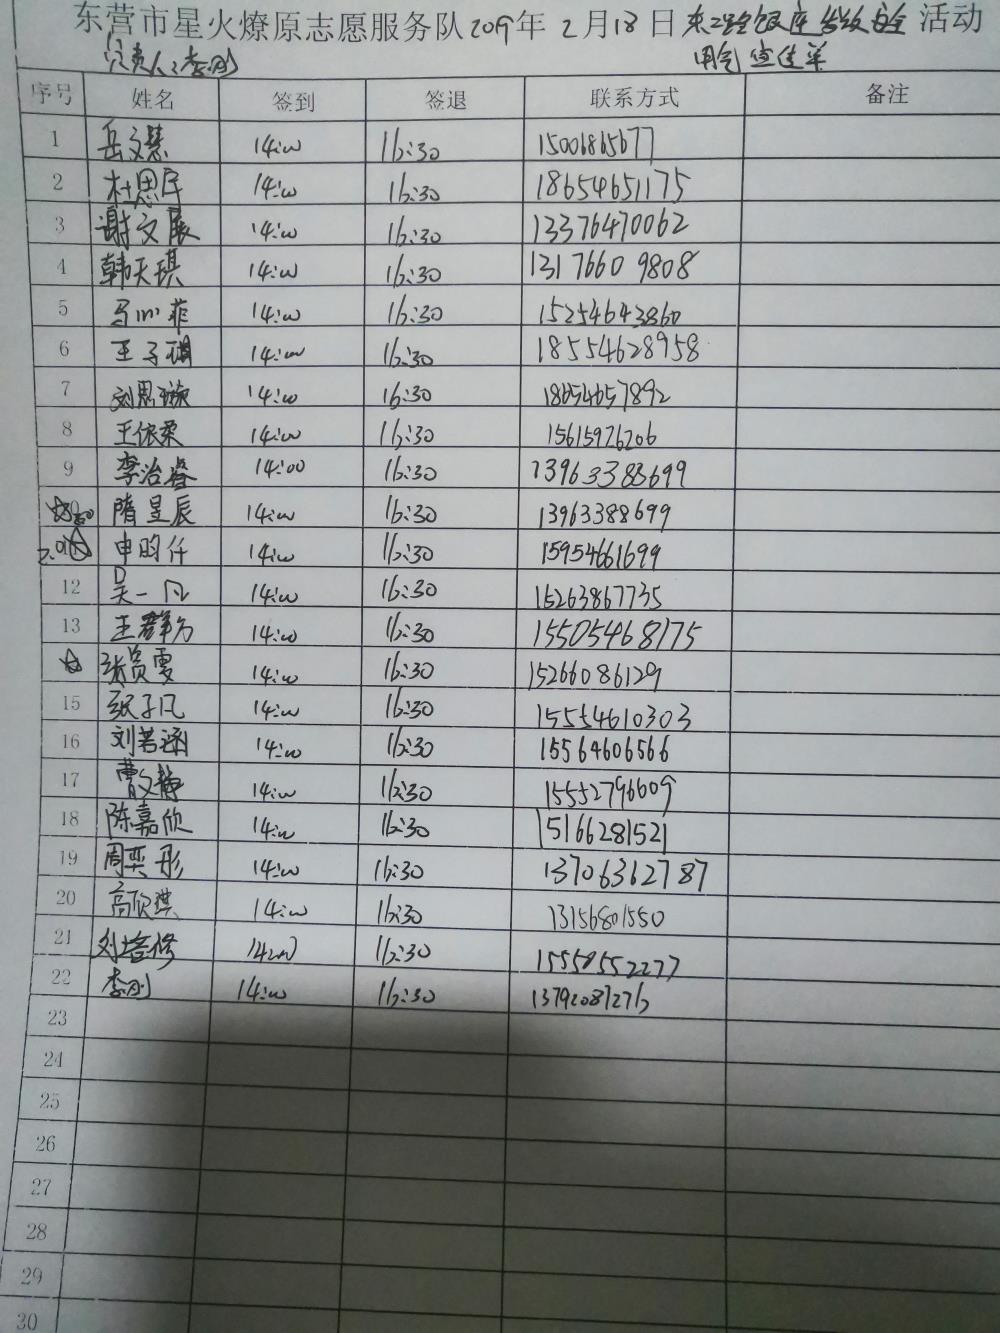 东营市星火燎原志愿服务队2019年2月18日东二路银座发放安全活动
负责人:李刚 用气宣传单
序号 姓名 签到 签退 联系方式 备注
1 岳文慧 14:00 16:30 15006865677
2 杜思民 14:00 16:30 18654651175
3 谢文展 14:00 16:30 13376470062
4 韩天琪 14:00 16:30 13176609808
5 马心菲 14:00 16:30 15254643860
6 王子琪 14:00 16:30 18554628958
7 刘思璇 14:00 16:30 18654657892
8 王依柔 14:00 16:30 15615976206
9 李治睿 14:00 16:30 13963388699
隋星辰 14:00 16:30 13963388699
申昀仟 14:00 16:30 15954661699
12 吴一凡 14:00 16:30 15263867735
13 王群方 14:00 16:30 15505468175
张贵雯 14:00 16:30 15266086129
15 张子凡 14:00 16:30 15554610303
16 刘若涵 14:00 16:30 15564606566
17 曹文静 14:00 16:30 15552796609
18 陈嘉欣 14:00 16:30 15166281521
19 周奕彤 14:00 16:30 13706362787
20 高欣琪 14:00 16:30 13156801550
21 刘培修 14:00 16:30 15558552277
22 李刚 14:00 16:30 13792087276
23
24
25
26
27
28
29
30